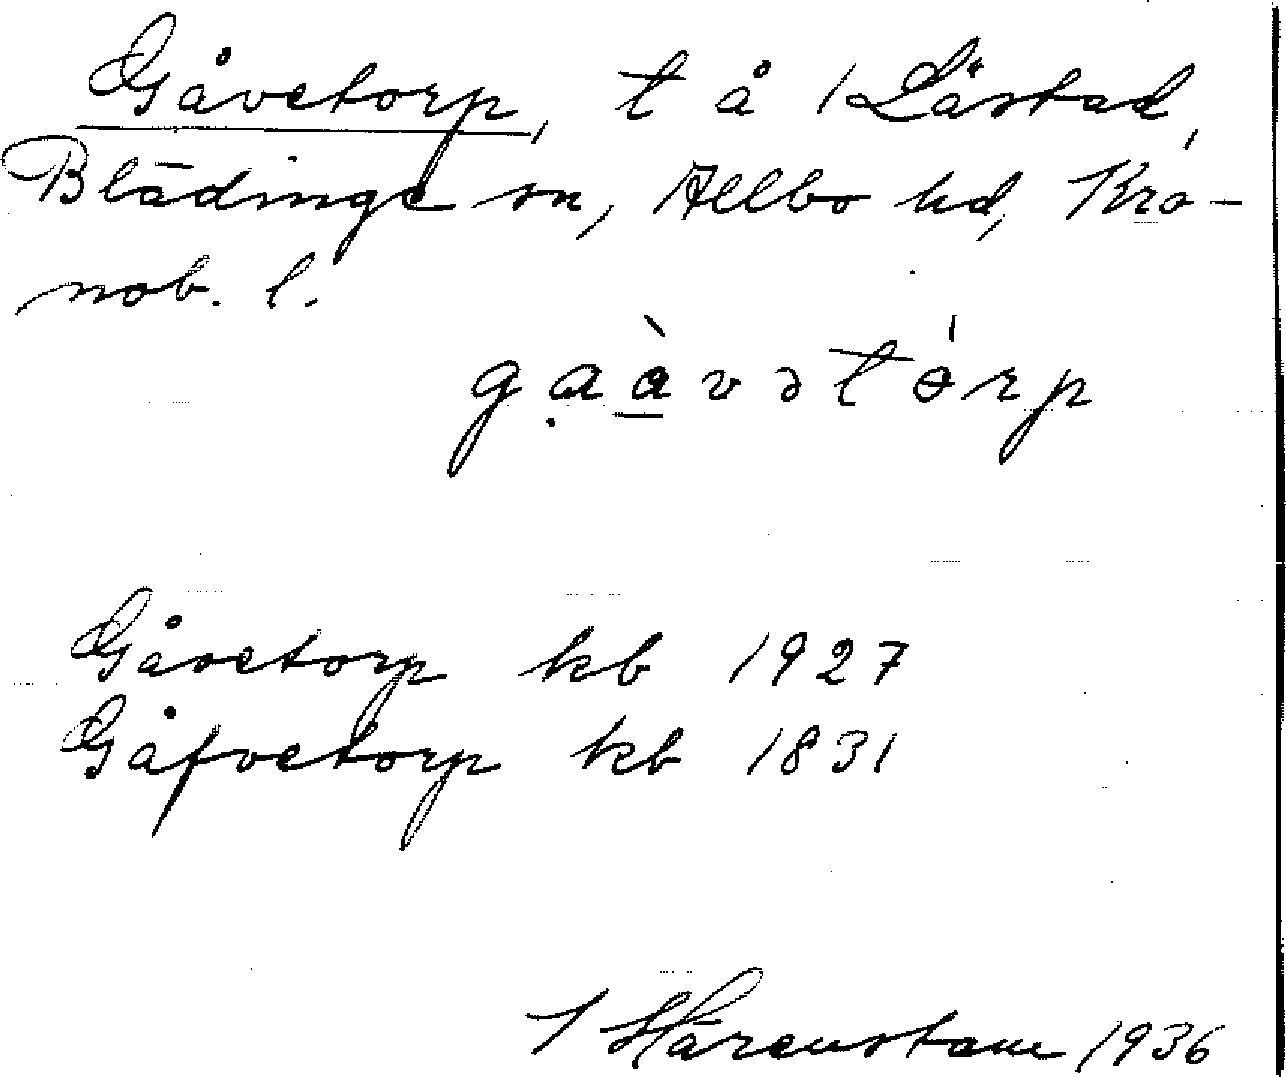 Gåvetorp, t å 1 Låstad,
Blädinge sn, Allbo hd, Kro-
nob. l.
gaàvətórp
Gåvetorp kb 1927
Gåfvetorp kb 1831
I Härenstam 1936